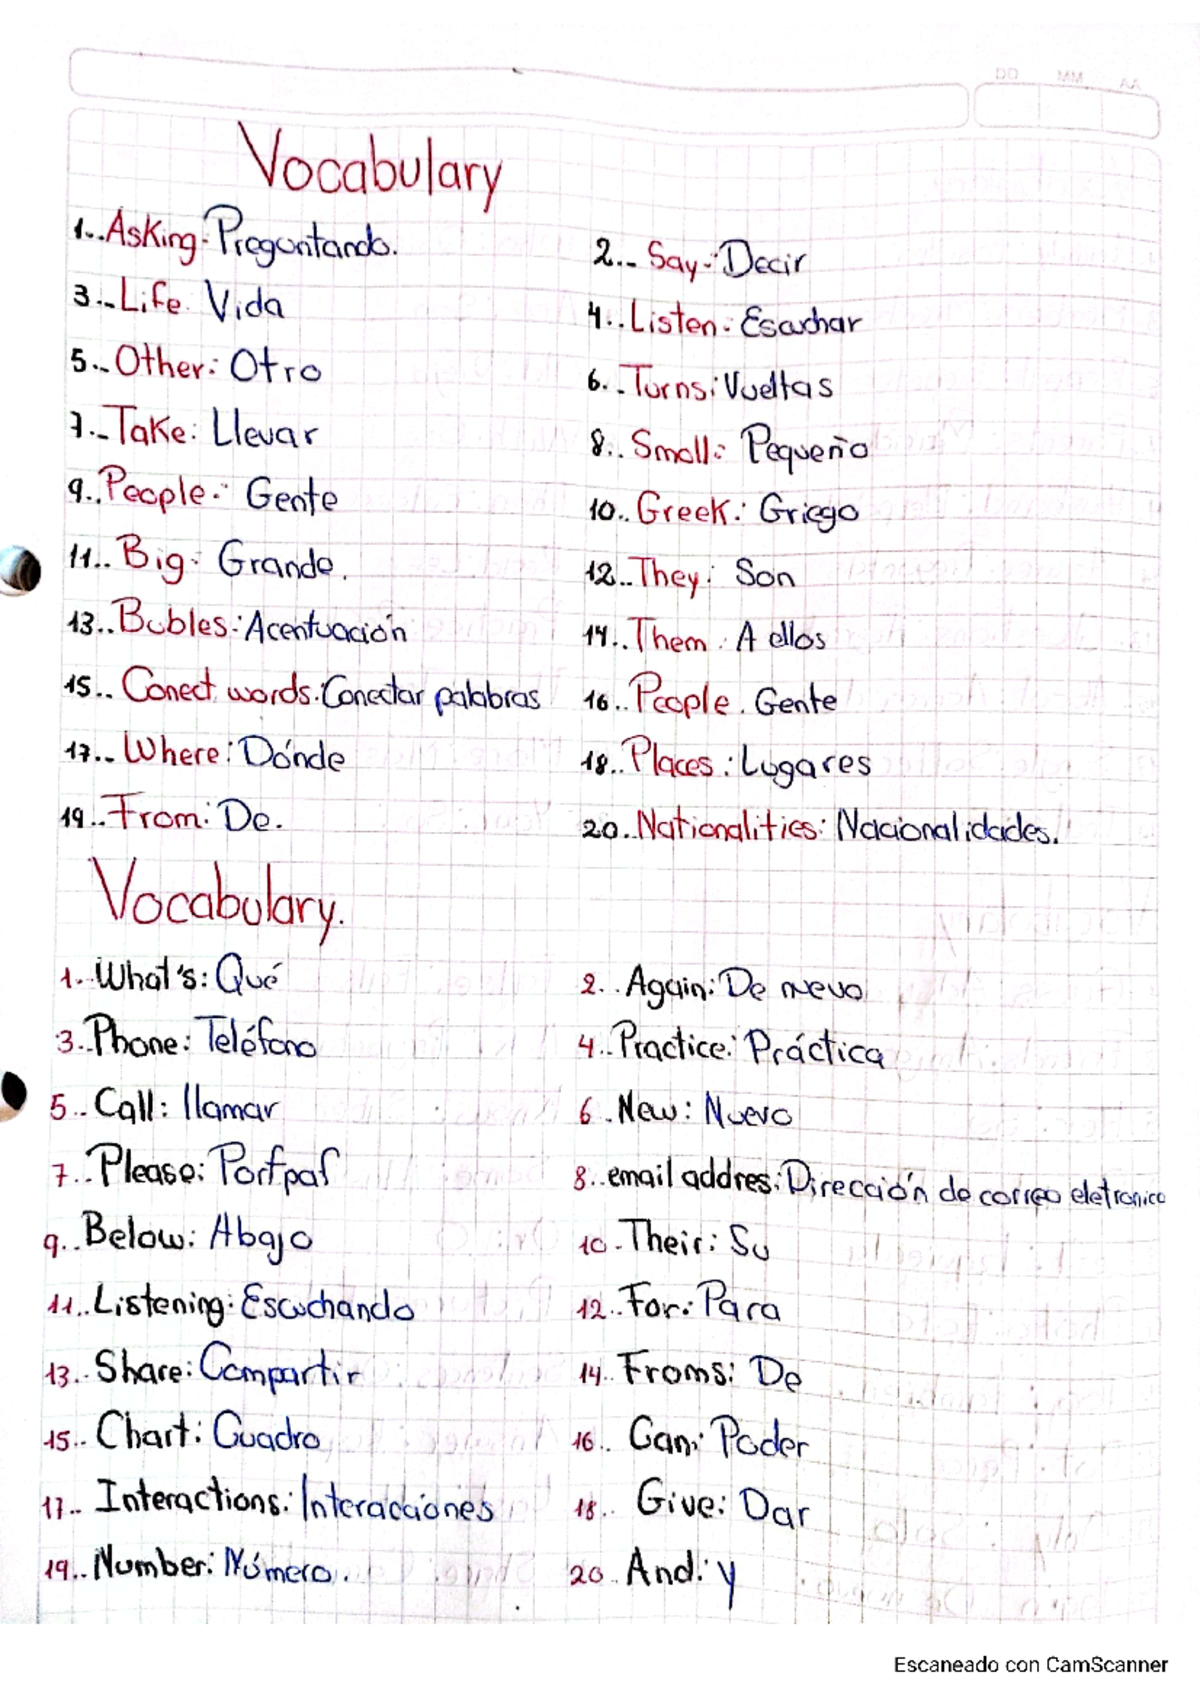 DD MM AA
Vocabulary
1.. Asking: Preguntando.
2.. Say: Decir
3.. Life. Vida
4.. Listen: Escuchar
5.. Other: Otro
6.. Turns: Vueltas
7.. Take: Llevar
8.. Small: Pequeño
9.. People: Gente
10.. Greek: Griego
11.. Big: Grande.
12.. They: Son
13.. Bubles: Acentuación
14.. Them. A ellos
15.. Conect words. Conectar palabras
16.. People. Gente
17.. Where: Dónde
18.. Places: Lugares
19.. From: De.
20.. Nationalities: Nacionalidades.
Vocabulary.
1.. What's: Qué
2.. Again: De nuevo
3.. Phone: Teléfono
4.. Practice: Práctica
5.. Call: llamar
6.. New: Nuevo
7.. Please:
8.. email addres: Dirección de correo eletronico
9.. Below: Abajo
10.. Their: Su
11.. Listening: Escuchando
12.. For: Para
13.. Share: Compartir
14.. Froms: De
15.. Chart: Cuadro
16.. Can: Poder
17.. Interactions: Interacciones
18.. Give: Dar
19.. Number: Número.
20.. And: y
Escaneado con CamScanner